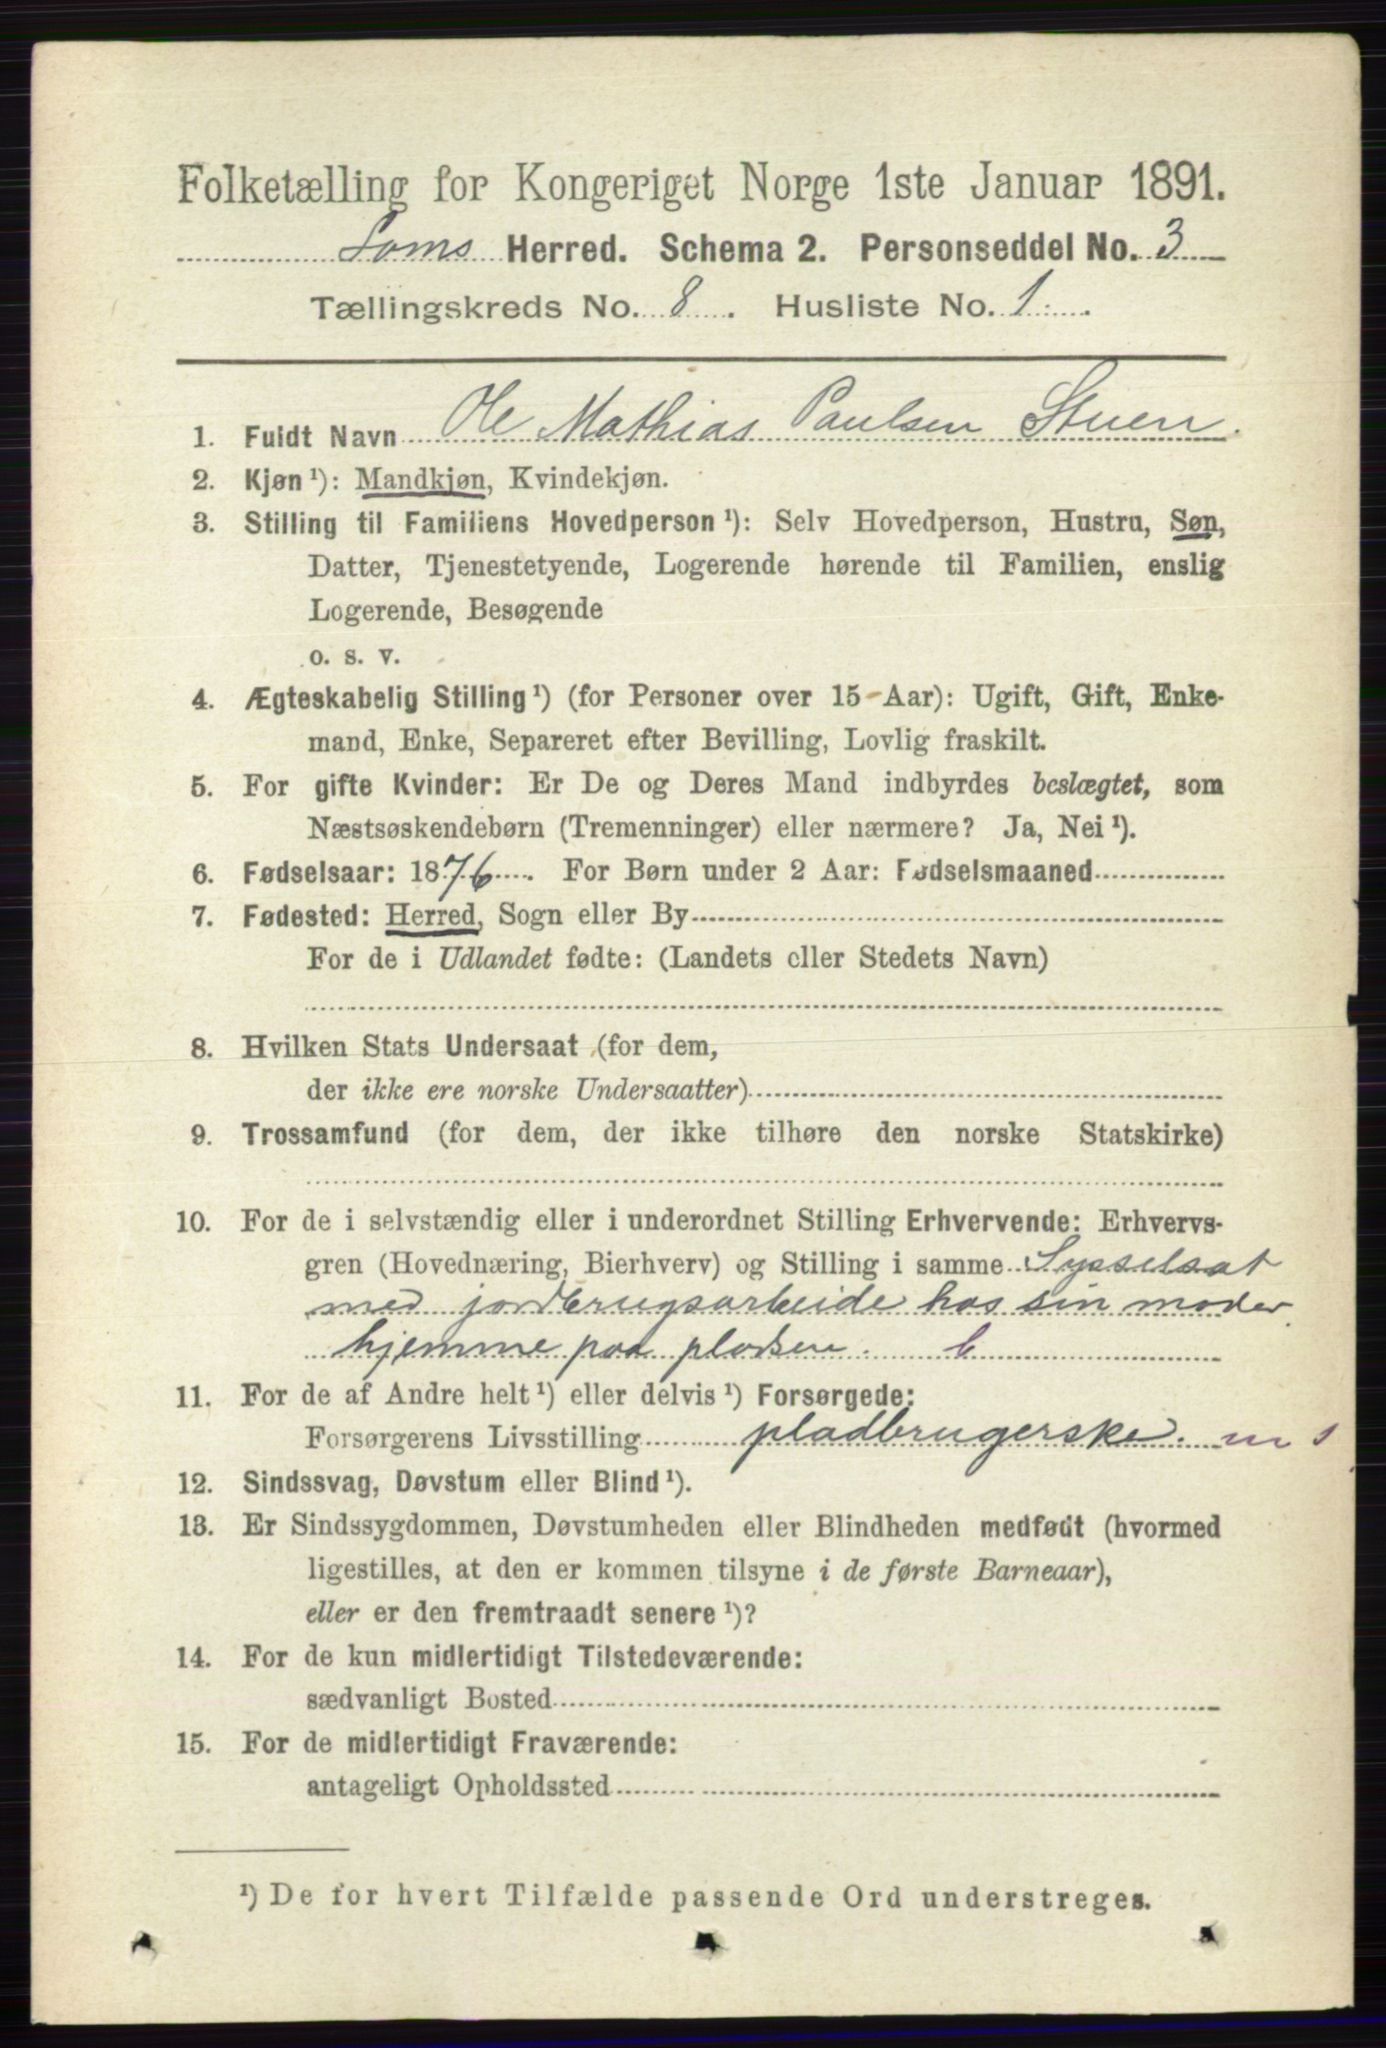 Folketælling for Kongeriget Norge 1ste Januar 1891.
Loms Herred. Schema 2. Personseddel No. 3
Tællingskreds No. 8. Husliste No. 1.
1. Fuldt Navn Ole Mathias Paulsen Stuen.
2. Kjøn ¹): Mandkjøn, Kvindekjøn.
3. Stilling til Familiens Hovedperson ¹): Selv Hovedperson, Hustru, Søn,
Datter, Tjenestetyende, Logerende hørende til Familien, enslig
Logerende, Besøgende
o. s. v.
4. Ægteskabelig Stilling ¹) (for Personer over 15 Aar): Ugift, Gift, Enke-
mand, Enke, Separeret efter Bevilling, Lovlig fraskilt.
5. For gifte Kvinder: Er De og Deres Mand indbyrdes beslægtet, som
Næstsøskendebørn (Tremenninger) eller nærmere? Ja, Nei ¹).
6. Fødselsaar: 1876. For Børn under 2 Aar: Fødselsmaaned
7. Fødested: Herred, Sogn eller By
For de i Udlandet fødte: (Landets eller Stedets Navn)
8. Hvilken Stats Undersaat (for dem,
der ikke ere norske Undersaatter)
9. Trossamfund (for dem, der ikke tilhøre den norske Statskirke)
10. For de i selvstændig eller i underordnet Stilling Erhvervende: Erhvervs-
gren (Hovednæring, Bierhverv) og Stilling i samme Sysselsat
med jordbrugsarbeide hos sin moder
hjemme paa pladsen. b
11. For de af Andre helt ¹) eller delvis ¹) Forsørgede:
Forsørgerens Livsstilling pladbrugerske. m s
12. Sindssvag, Døvstum eller Blind ¹).
13. Er Sindssygdommen, Døvstumheden eller Blindheden medfødt (hvormed
ligestilles, at den er kommen tilsyne i de første Barneaar),
eller er den fremtraadt senere ¹)?
14. For de kun midlertidigt Tilstedeværende:
sædvanligt Bosted
15. For de midlertidigt Fraværende:
antageligt Opholdssted
¹) De for hvert Tilfælde passende Ord understreges.